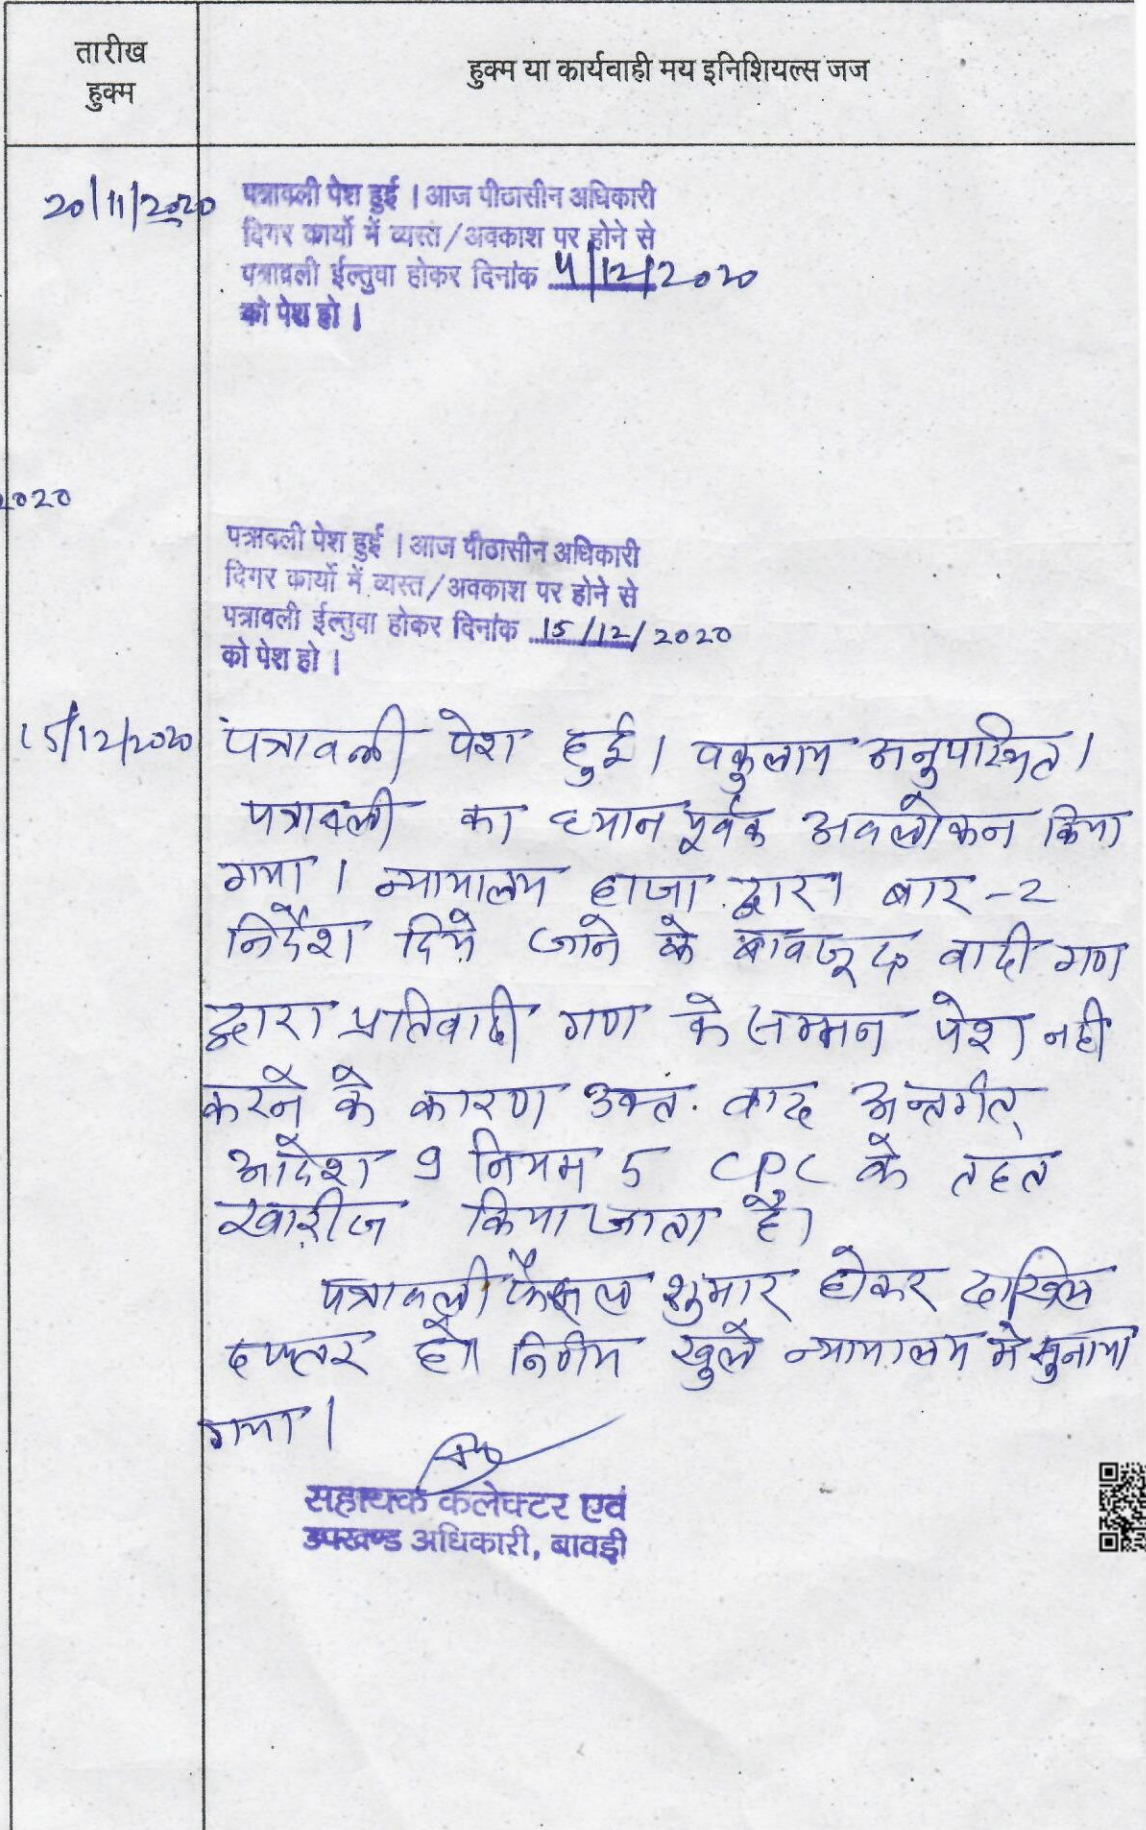 तारीख
हुक्म
हुक्म या कार्यवाही मय इनिशियल्स जज
20/11/2020
पत्रावली पेश हुई । आज पीठासीन अधिकारी
दिगर कार्यो में व्यस्त/अवकाश पर होने से
पत्रावली ईल्तुवा होकर दिनांक 4/12/2020
को पेश हो ।
2020
पत्रावली पेश हुई । आज पीठासीन अधिकारी
दिगर कार्यो में व्यस्त/अवकाश पर होने से
पत्रावली ईल्तुवा होकर दिनांक 15/12/2020
को पेश हो ।
15/12/2020
पत्रावली पेश हुई। वकुलाय अनुपस्थित।
पत्रावली का ध्यान पूर्वक अवलोकन किया
गया। न्यायालय हाजा द्वारा बार-2
निर्देश दिये जाने के बावजूद वादी गण
द्वारा प्रतिवादी गण के सम्मन पेश नही
करने के कारण उक्त वाद अन्तर्गत
आदेश 9 नियम 5 CPC के तहत
खारीज किया जाता है।
पत्रावली फैसल शुमार होकर दाखिल
दफ्तर हो। निर्णय खुले न्यायालय मे सुनाया
गया।
सहायक कलेक्टर एवं
उपखण्ड अधिकारी, बावड़ी